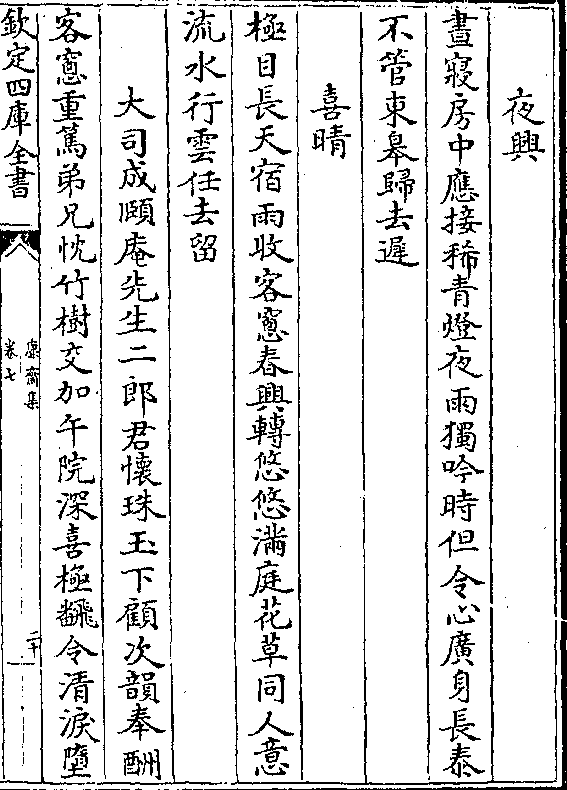 夜興
晝寢房中應接稀青燈夜雨獨吟時但令心廣身長泰
不管東皋歸去遲
喜晴
極目長天宿雨收客窻春興轉悠悠滿庭花草同人意
流水行雲任去留
大司成頤庵先生二郎君懷珠玉下顧次韻奉酬
客窻重篤弟兄忱竹樹交加午院深喜極飜令清淚墮
欽定四庫全書
康齋集
卷七
二十